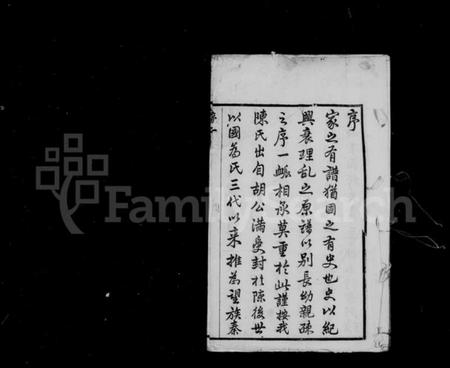 序
家之有譜猶國之有史也史以紀
興衰理亂之原譜以別長幼親疎
之序一脈相承莫重於此謹按我
陳氏出自胡公滿受封於陳後世
以國為氏三代以來推為望族秦
FamilySearch